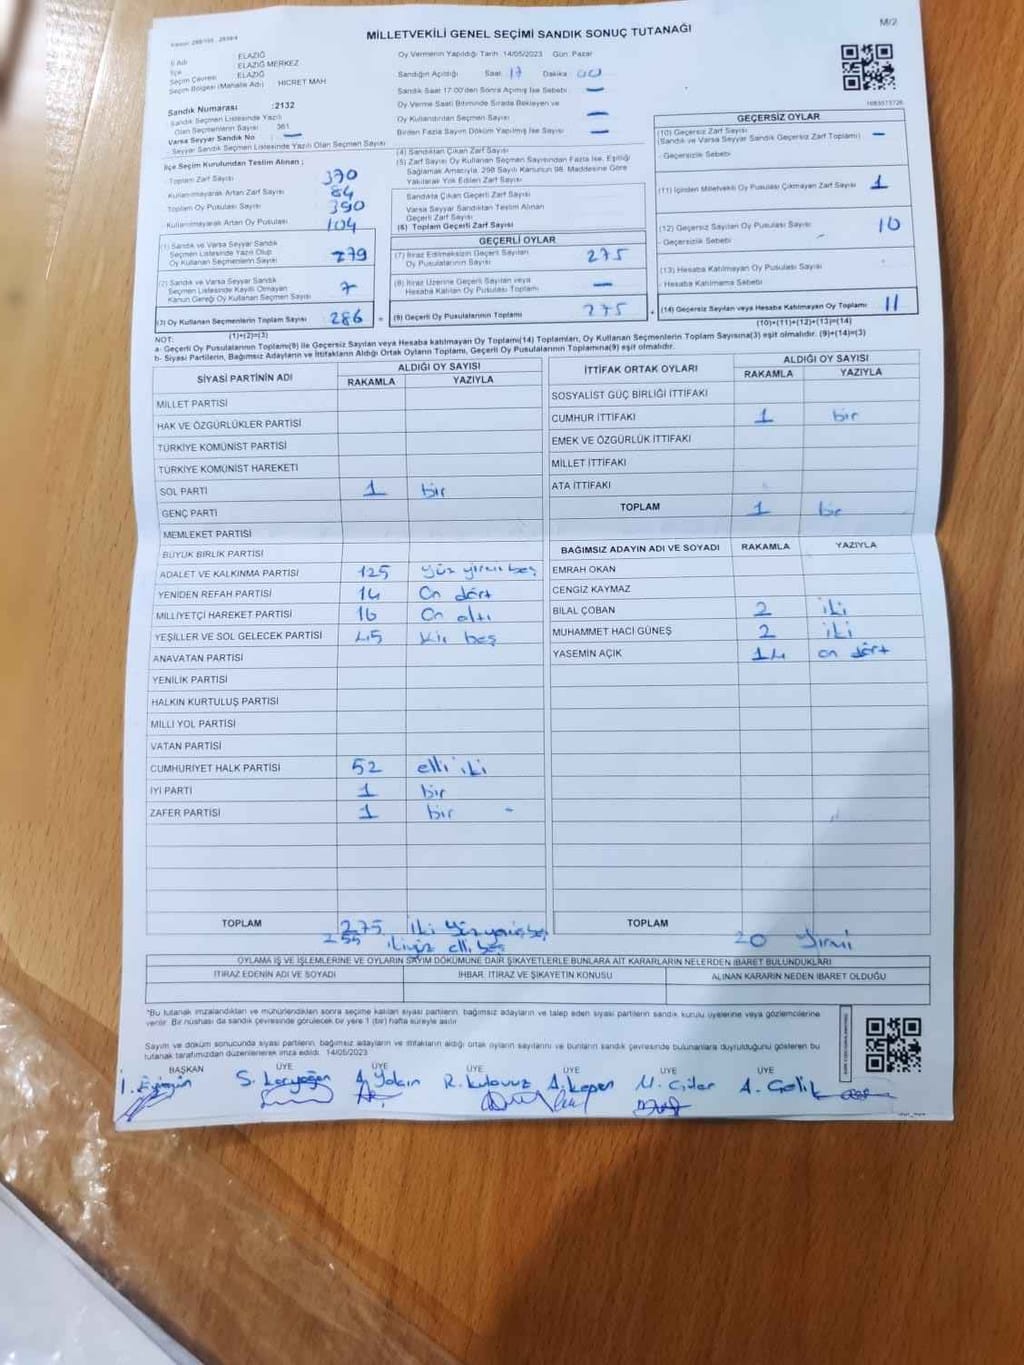 MİLLETVEKİLİ GENEL SEÇİMİ SANDIK SONUÇ TUTANAĞI
M/2
İl Adı : ELAZIĞ
İlçe : ELAZIĞ MERKEZ
Seçim Çevresi : ELAZIĞ
Seçim Bölgesi (Mahalle Adı) : HICRET MAH
Sandık Numarası : 2132
Sandık Seçmen Listesinde Yazılı
Olan Seçmenlerin Sayısı : 361
Varsa Seyyar Sandık No : —
Seyyar Sandık Seçmen Listesinde Yazılı Olan Seçmen Sayısı
Oy Vermenin Yapıldığı Tarih 14/05/2023 Gün: Pazar
Sandığın Açıldığı Saat 17 Dakika 00
Sandık Saat 17:00'den Sonra Açılmış İse Sebebi —
Oy Verme Saati Bitiminde Sırada Bekleyen ve
Oy Kullandırılan Seçmen Sayısı —
Birden Fazla Sayım Döküm Yapılmış İse Sayısı —
İlçe Seçim Kurulundan Teslim Alınan ;
Toplam Zarf Sayısı 370
Kullanılmayarak Artan Zarf Sayısı 84
Toplam Oy Pusulası Sayısı 390
Kullanılmayarak Artan Oy Pusulası 104
(1) Sandık ve Varsa Seyyar Sandık
Seçmen Listesinde Yazılı Olup
Oy Kullanan Seçmenlerin Sayısı 279
(2) Sandık ve Varsa Seyyar Sandık
Seçmen Listesinde Kayıtlı Olmayan
Kanun Gereği Oy Kullanan Seçmen Sayısı 7
(3) Oy Kullanan Seçmenlerin Toplam Sayısı 286 =
(1)+(2)=(3)
(4) Sandıktan Çıkan Zarf Sayısı
(5) Zarf Sayısı Oy Kullanan Seçmen Sayısından Fazla İse, Eşitliği
Sağlamak Amacıyla, 298 Sayılı Kanunun 98. Maddesine Göre
Yakılarak Yok Edilen Zarf Sayısı
Sandıkta Çıkan Geçerli Zarf Sayısı
Varsa Seyyar Sandıktan Teslim Alınan
Geçerli Zarf Sayısı
(6) Toplam Geçerli Zarf Sayısı
GEÇERLİ OYLAR
(7) İtiraz Edilmeksizin Geçerli Sayılan
Oy Pusulalarının Sayısı 275
(8) İtiraz Üzerine Geçerli Sayılan veya
Hesaba Katılan Oy Pusulası Toplamı —
(9) Geçerli Oy Pusulalarının Toplamı 275 +
GEÇERSİZ OYLAR
(10) Geçersiz Zarf Sayısı
(Sandık ve Varsa Seyyar Sandık Geçersiz Zarf Toplamı) —
- Geçersizlik Sebebi
(11) İçinden Milletvekili Oy Pusulası Çıkmayan Zarf Sayısı 1
(12) Geçersiz Sayılan Oy Pusulası Sayısı 10
- Geçersizlik Sebebi
(13) Hesaba Katılmayan Oy Pusulası Sayısı
- Hesaba Katılmama Sebebi
(14) Geçersiz Sayılan veya Hesaba Katılmayan Oy Toplamı 11
(10)+(11)+(12)+(13)=(14)
NOT:
a- Geçerli Oy Pusulalarının Toplamı(9) ile Geçersiz Sayılan veya Hesaba katılmayan Oy Toplamı(14) Toplamları, Oy Kullanan Seçmenlerin Toplam Sayısına(3) eşit olmalıdır. (9)+(14)=(3)
b- Siyasi Partilerin, Bağımsız Adayların ve İttifakların Aldığı Ortak Oyların Toplamı, Geçerli Oy Pusulalarının Toplamına(9) eşit olmalıdır.
SİYASİ PARTİNİN ADI ALDIĞI OY SAYISI
RAKAMLA YAZIYLA
MİLLET PARTİSİ
HAK VE ÖZGÜRLÜKLER PARTİSİ
TÜRKİYE KOMÜNİST PARTİSİ
TÜRKİYE KOMÜNİST HAREKETİ
SOL PARTİ 1 bir
GENÇ PARTİ
MEMLEKET PARTİSİ
BÜYÜK BİRLİK PARTİSİ
ADALET VE KALKINMA PARTİSİ 125 yüz yirmi beş
YENİDEN REFAH PARTİSİ 14 On dört
MİLLİYETÇİ HAREKET PARTİSİ 16 On altı
YEŞİLLER VE SOL GELECEK PARTİSİ 45 kır beş
ANAVATAN PARTİSİ
YENİLİK PARTİSİ
HALKIN KURTULUŞ PARTİSİ
MİLLİ YOL PARTİSİ
VATAN PARTİSİ
CUMHURİYET HALK PARTİSİ 52 elli iki
İYİ PARTİ 1 bir
ZAFER PARTİSİ 1 bir
TOPLAM 275
255 ikiyüz elli beş
İTTİFAK ORTAK OYLARI ALDIĞI OY SAYISI
RAKAMLA YAZIYLA
SOSYALİST GÜÇ BİRLİĞİ İTTİFAKI
CUMHUR İTTİFAKI 1 bir
EMEK VE ÖZGÜRLÜK İTTİFAKI
MİLLET İTTİFAKI
ATA İTTİFAKI
TOPLAM 1 bir
BAĞIMSIZ ADAYIN ADI VE SOYADI RAKAMLA YAZIYLA
EMRAH OKAN
CENGİZ KAYMAZ
BİLAL ÇOBAN 2 iki
MUHAMMET HACI GÜNEŞ 2 iki
YASEMİN AÇIK 14 on dört
TOPLAM 20 Yirmi
OYLAMA İŞ VE İŞLEMLERİNE VE OYLARIN SAYIM DÖKÜMÜNE DAİR ŞİKAYETLERLE BUNLARA AİT KARARLARIN NELERDEN İBARET BULUNDUKLARI
İTİRAZ EDENİN ADI VE SOYADI İHBAR, İTİRAZ VE ŞİKAYETİN KONUSU ALINAN KARARIN NEDEN İBARET OLDUĞU
*Bu tutanak imzalandıktan ve mühürlendikten sonra seçime katılan siyasi partilerin, bağımsız adayların ve talep eden siyasi partilerin sandık kurulu üyelerine veya gözlemcilerine
verilir. Bir nüshası da sandık çevresinde görülecek bir yere 1 (bir) hafta süreyle asılır
Sayım ve döküm sonucunda siyasi partilerin, bağımsız adayların ve ittifakların aldığı ortak oyların sayılarını ve bunların sandık çevresinde bulunanlara duyurulduğunu gösteren bu
tutanak tarafımızdan düzenlenerek imza edildi. 14/05/2023
BAŞKAN ÜYE ÜYE ÜYE ÜYE ÜYE ÜYE
A. Yalçın A. Çelik